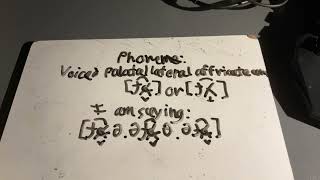 Phoneme:
Voiced palatal lateral affricate
[ɟ͡ʎ̝] or [ɟ͡ʎ]
I am saying:
[ɟ͡ʎ̝ə.əɟ͡ʎ̝ə.əɟ͡ʎ̝]